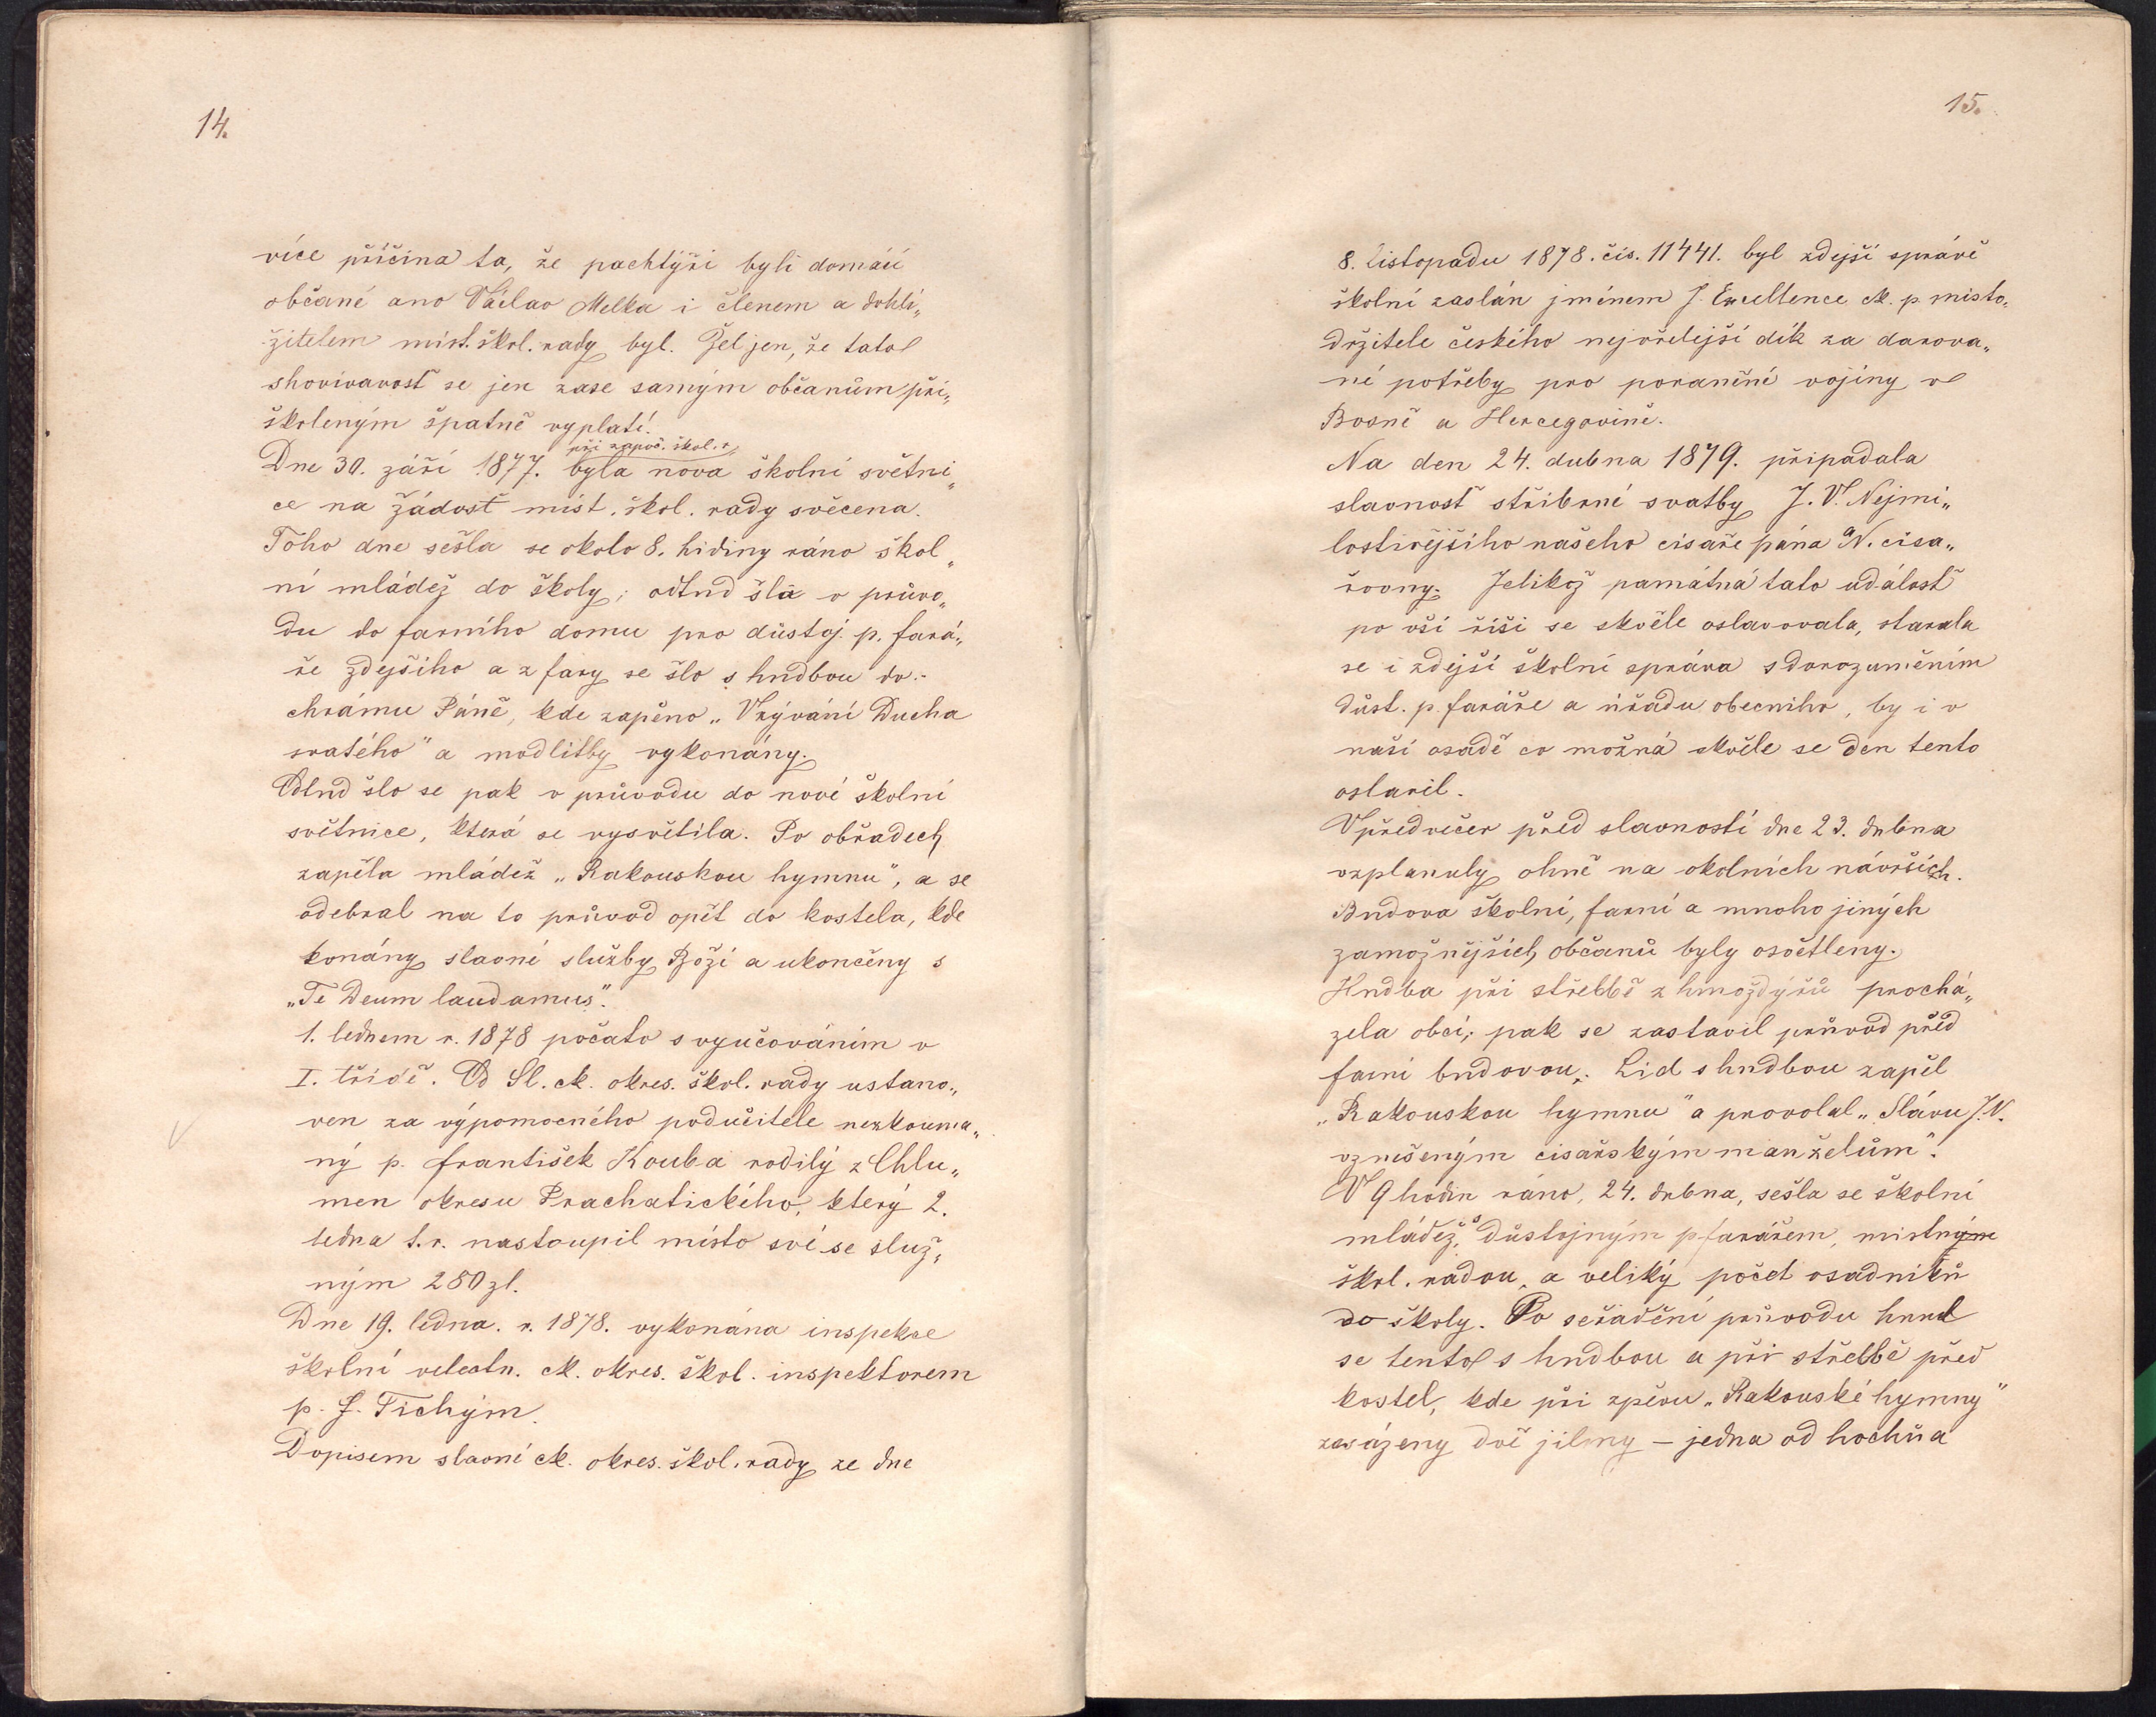 14.
více příčina ta, že pachtýři byli domácí
občané ano Václav Melka i členem a dohlí„
žitelem míst. škol. rady byl. Žel jen, že tato
shovívavosť se jen zase samým občanům při„
školeným špatně vyplatí.
při započ. škol. r.
Dne 30. září 1877. byla nova školní světni„
ce na žádosť míst. škol. rady svěcena.
Toho dne sešla se okolo 8. hidiny ráno škol„
ní mládež do školy; odtud šla v průvo„
du do farního domu pro důstoj. p. fará„
ře zdejšiho a z fary se šlo s hudbou do
chrámu Páně, kde zapěno „Vzývání Ducha
svatého" a modlitby vykonány.
Odtud šlo se pak v průvodu do nové školní
světnice, která se vysvětila. Po obřadech
zapěla mládež „Rakouskou hymnu", a se
odebral na to průvod opět do kostela, kde
konány slavné služby Boží a ukončeny s
„Te Deum laudamus".
1. lednem r. 1878 počato s vyučováním v
I. třídě. Od Sl. ck. okres. škol. rady ustano„
ven za výpomocného podučitele nezkouma„
ný p. František Kouba rodilý z Chlu„
men okresu Prachatického, který 2.
ledna t.r. nastoupil místo své se služ„
ným 280 zl.
Dne 19. ledna. r. 1878. vykonána inspekce
školní velectn. ck. okres. škol. inspektorem
p. J. Tichým.
Dopisem slavné ck. okres. škol. rady ze dne
15.
8. Listopadu 1878. čís. 11441. byl zdejší správě
školní zaslán jménem J. Excellence ck. p. místo„
držitele českého nejvřelejší dík za darova„
né potřeby pro poraněné vojíny v
Bosně a Hercegovině.
Na den 24. dubna 1879. připadala
slavnosť stříbrné svatby J. V. Nejmi„
lostivějšího našeho císaře pána a N. císa„
řovny. Jelikož památná tato událosť
po vší říši se skvěle oslavovala, starala
se i zdejší školní správa s dorozuměním
důst. p. faráře a úřadu obecního, by i v
naší osadě co možná skvěle se den tento
oslavil.
V předvečer před slavností dne 23. dubna
vzplanuly ohně na okolních návrších.
Budova školní, farní a mnoho jiných
zamožnějších občanů byly osvětleny.
Hudba při střelbě z hmoždýřů prochá„
zela obcí; pak se zastavil průvod před
farní budovou. Lid s hudbou zapěl
„Rakouskou hymnu" a provolal „Slávu J.V.
vznešeným císařským manželům".
V 9 hodin ráno, 24. dubna, sešla se školní
mládež, s důstojným p. farářem, místným
škol. radou, a veliký počet osadníků
do školy. Po seřadění průvodu hnul
se tento s hudbou a při střelbě před
kostel, kde při zpěvu „Rakouské hymny"
zasázeny dvě jilmy – jedna od hochů a